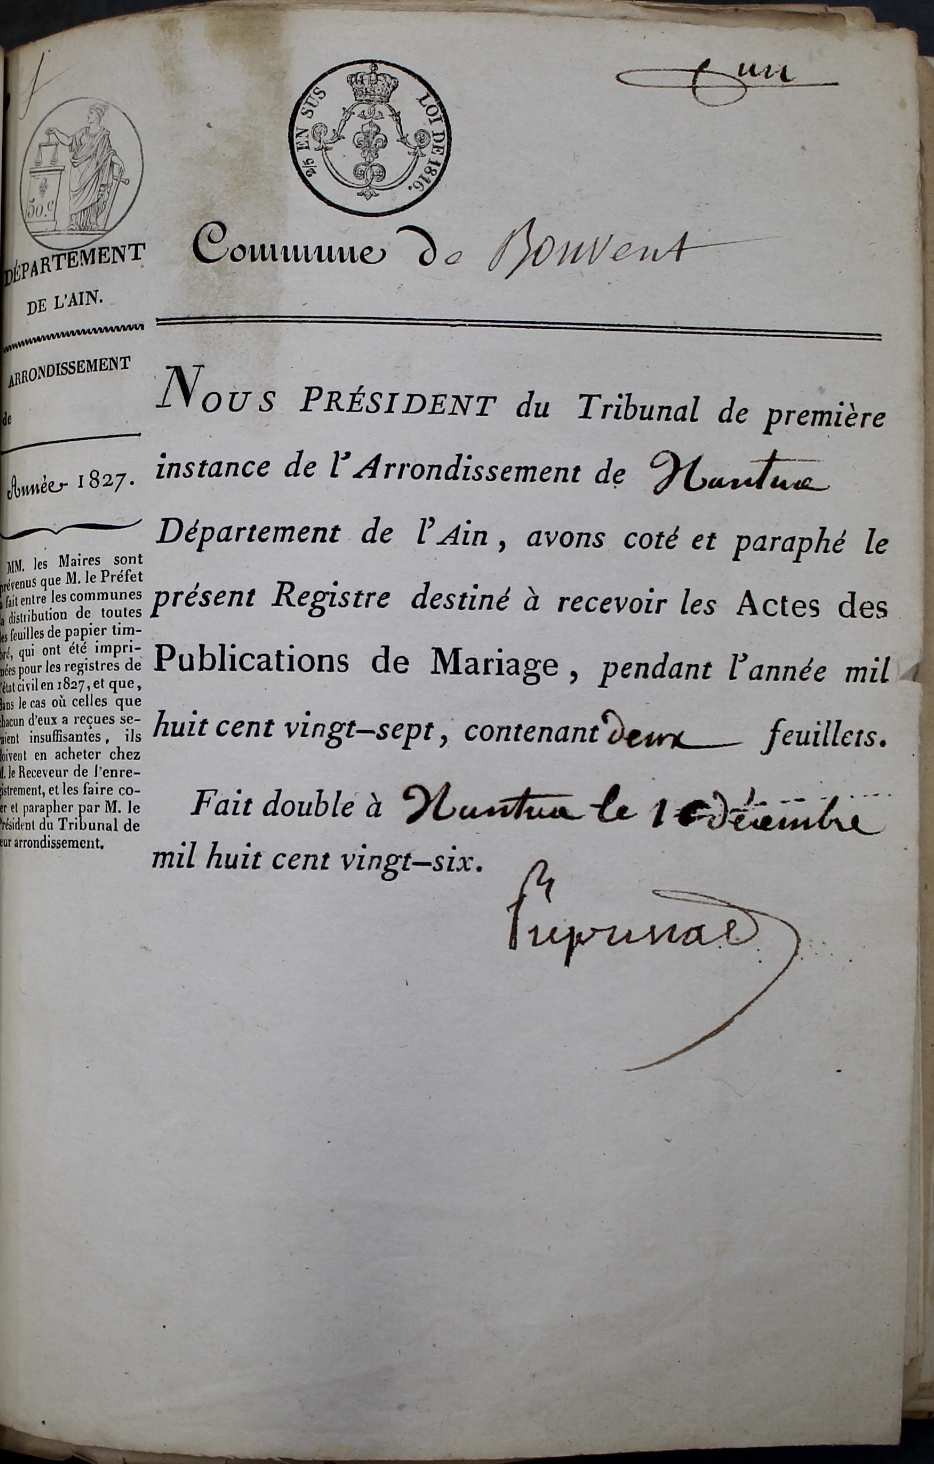 un
2/5 EN SUS LOI DE 1816.
50.c
Commune de Bouvent
DÉPARTEMENT
DE L'AIN.
ARRONDISSEMENT
de
Année 1827.
MM. les Maires sont
prévenus que M. le Préfet
a fait entre les communes
la distribution de toutes
les feuilles de papier tim-
bré, qui ont été impri-
mées pour les registres de
l'état civil en 1827, et que,
dans le cas où celles que
chacun d'eux a reçues se-
raient insuffisantes, ils
doivent en acheter chez
M. le Receveur de l'enre-
gistrement, et les faire co-
ter et parapher par M. le
Président du Tribunal de
leur arrondissement.
NOUS PRÉSIDENT du Tribunal de première
instance de l'Arrondissement de Nantua
Département de l'Ain, avons coté et paraphé le
présent Registre destiné à recevoir les Actes des
Publications de Mariage, pendant l'année mil
huit cent vingt-sept, contenant deux feuillets.
Fait double à Nantua le 10 décembre
mil huit cent vingt-six.